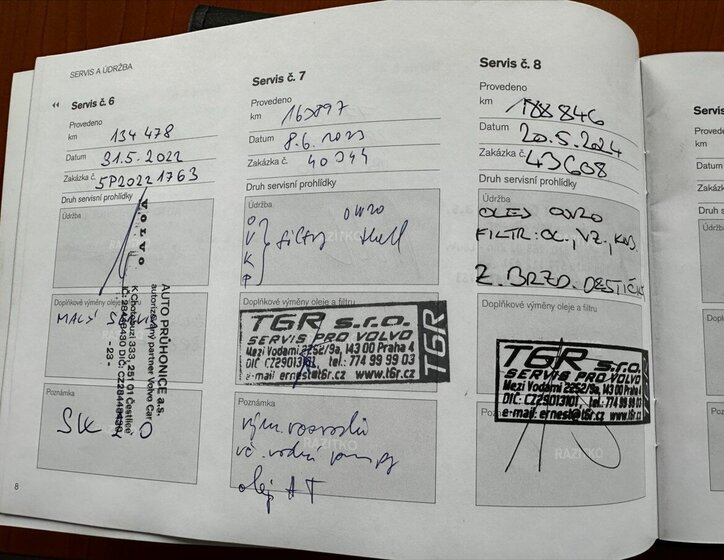 SERVIS A ÚDRŽBA
Servis č. 6
Provedeno
km 134 478
Datum 31.5.2022
Zakázka č. 5P20221763
Druh servisní prohlídky
Údržba
RAZÍTKO
VOLVO
AUTO PRŮHONICE a.s.
autorizovaný partner Volvo Car
K Chotobuzi 333, 251 01 Čestlice
IČ: 28448430 DIČ: CZ28448430
- 23 -
Doplňkové výměny oleje a filtru
MALÝ
Poznámka
8
Servis č. 7
Provedeno
km 163897
Datum 8.6.2023
Zakázka č. 40344
Druh servisní prohlídky
Údržba
OVKP } filtry 0W20
RAZÍTKO
Doplňkové výměny oleje a filtru
T6R s.r.o.
SERVIS PRO VOLVO
Mezi Vodami 2252/9a, 143 00 Praha 4
DIČ: CZ29013101 tel.: 774 99 99 03
e-mail: ernest@t6r.cz www.t6r.cz
T6R
Poznámka
vým. rozvodů
vč. vodní pumpy
olej AT
RAZÍTKO
Servis č. 8
Provedeno
km 188846
Datum 20.5.2024
Zakázka č. 43608
Druh servisní prohlídky
Údržba
OLEJ 0W20
FILTR: OL., VZ., KAB.
Z. BRZD. DESTIČKY
Doplňkové výměny oleje a filtru
T6R s.r.o.
SERVIS PRO VOLVO
Mezi Vodami 2252/9a, 143 00 Praha 4
DIČ: CZ29013101 tel.: 774 99 99 03
e-mail: ernest@t6r.cz www.t6r.cz
RAZÍTKO
Servis
Proveden
km
Datum
Zakázka
Druh se